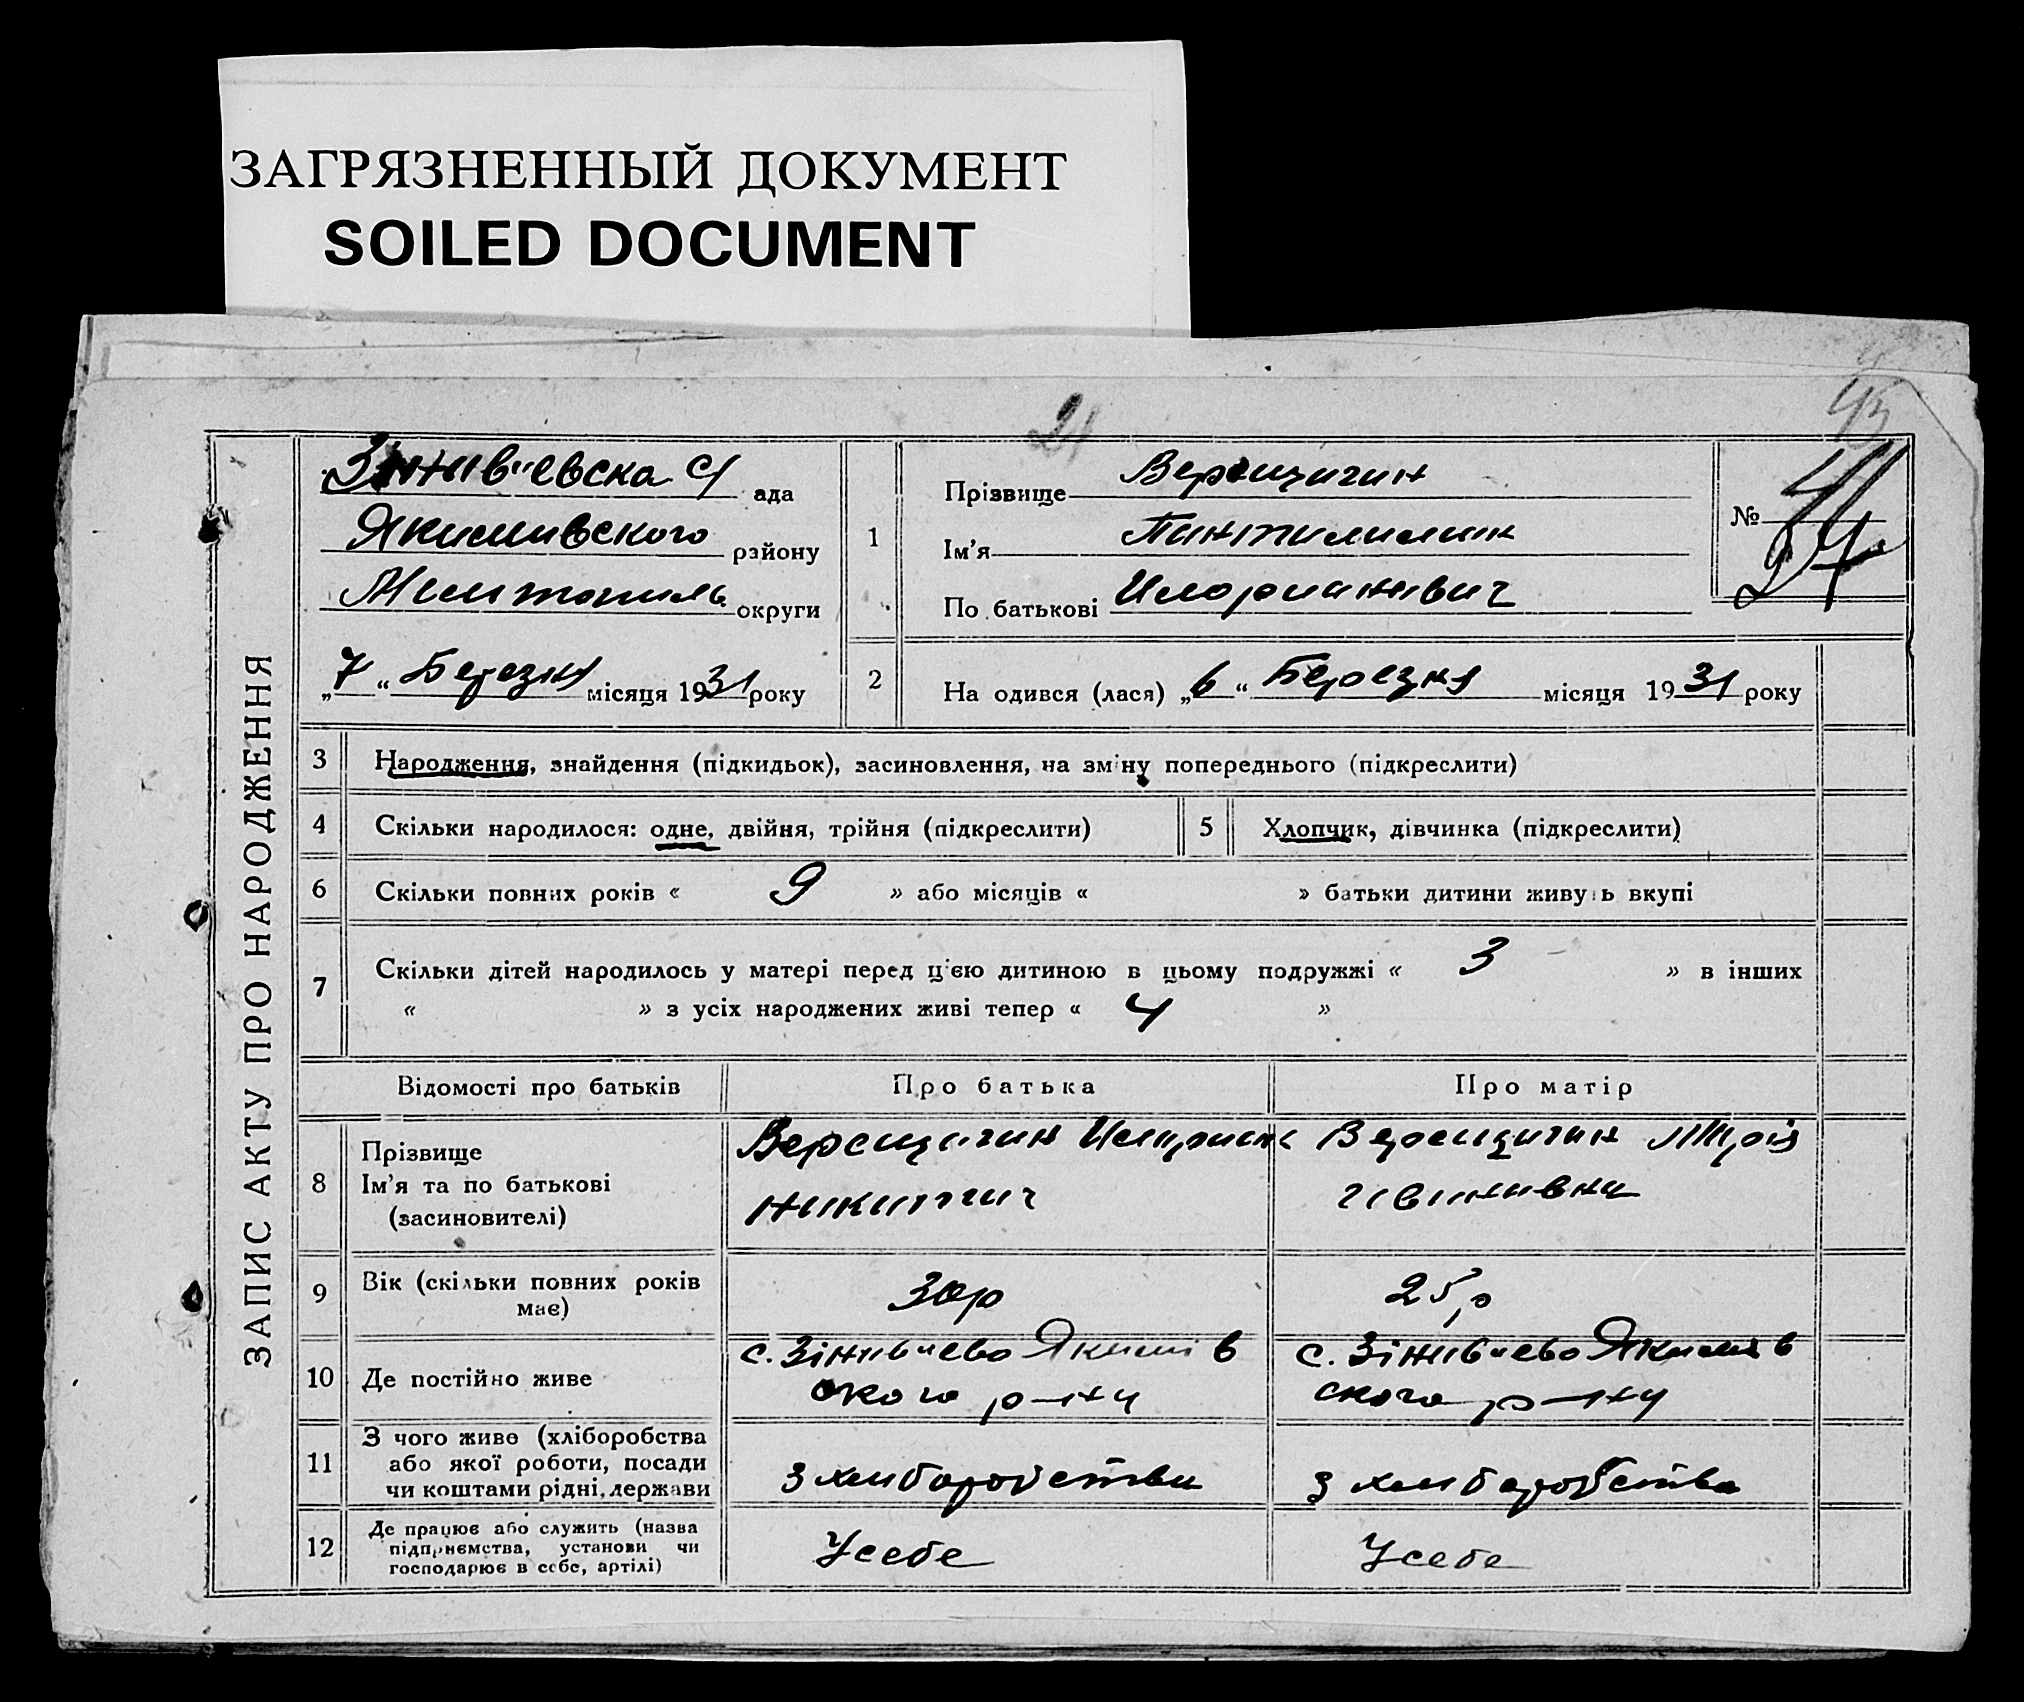 ЗАГРЯЗНЕННЫЙ ДОКУМЕНТ
SOILED DOCUMENT
21
ЗАПИС АКТУ ПРО НАРОДЖЕННЯ
ада
Якимивского району
округи
„7“ Березня місяця 1931 року
1
Прізвище Верещагин
Ім'я
По батькові
№ 24
2
На одився (лася) „6“ Березня місяця 1931 року
3 Народження, знайдення (підкидьок), засиновлення, на зміну попереднього (підкреслити)
4 Скільки народилося: одне, двійня, трійня (підкреслити)
5 Хлопчик, дівчинка (підкреслити)
6 Скільки повних років « 9 » або місяців « » батьки дитини живуть вкупі
7 Скільки дітей народилось у матері перед ц'єю дитиною в цьому подружжі « 3 » в інших
« » з усіх народжених живі тепер « 4 »
Відомості про батьків Про батька Про матір
8 Прізвище
Ім'я та по батькові
(засиновителі)
Верещагин
Никитич
Верещагин Марія
Іванивна
9 Вік (скільки повних років має)
30 р
25 р
10 Де постійно живе
с. Якимів
ского р-ну
с. Якимів
ского р-ну
11 З чого живе (хліборобства
або якої роботи, посади
чи коштами рідні, держави
з хлиборобства
з хлиборобства
12 Де працює або служить (назва
підприємства, установи чи
господарює в себе, артілі)
Усебе
Усебе